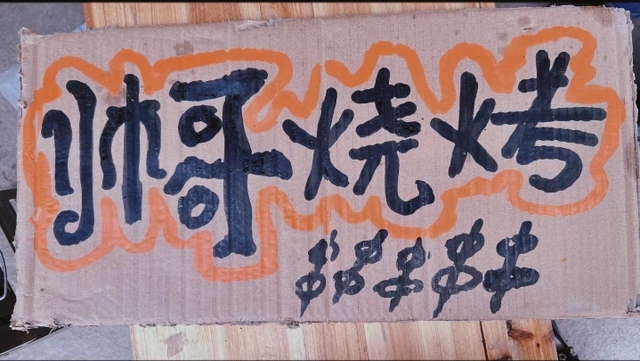 帅哥烧烤